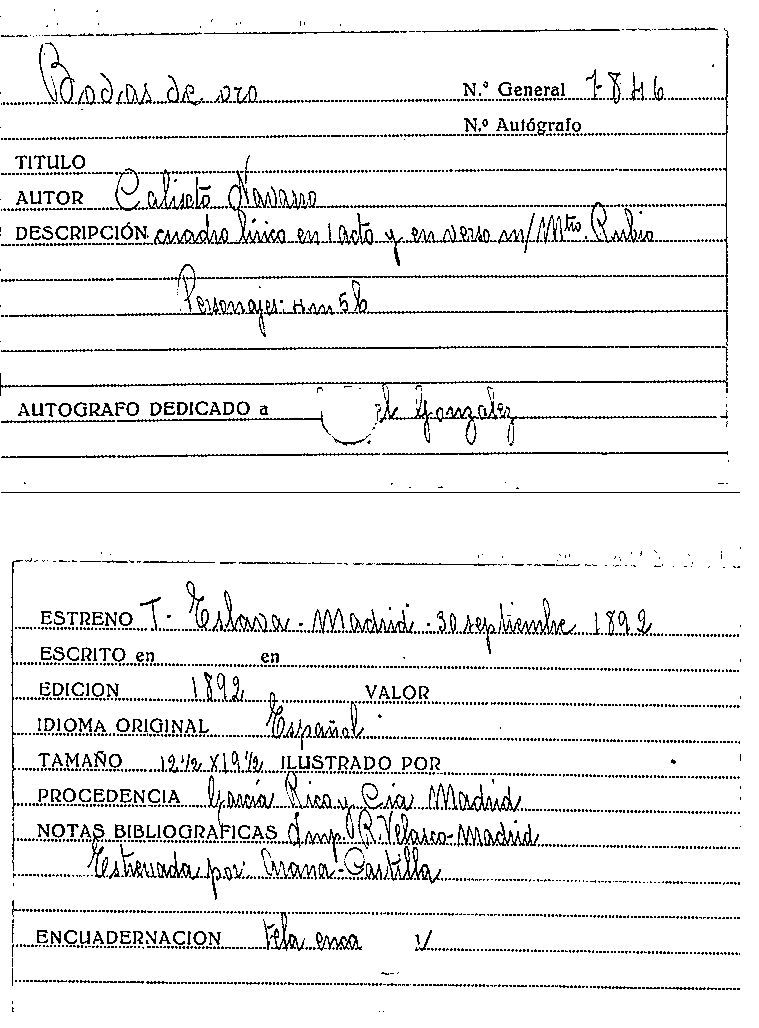 Bodas de oro N.º General 7846
N.º Autógrafo
TITULO
AUTOR Calisto Navarro
DESCRIPCIÓN cuadro lírico en 1 acto y en verso m/ Mtro. Rubio
Personajes:
AUTOGRAFO DEDICADO a Gonzalez
ESTRENO T. Eslava - Madrid - 30 septiembre 1892
ESCRITO en en
EDICION 1892 VALOR
IDIOMA ORIGINAL Español
TAMAÑO 12 1/2 X 19 1/2 ILUSTRADO POR
PROCEDENCIA García Rico y Cia Madrid
NOTAS BIBLIOGRAFICAS Imp. R. Velasco - Madrid
Estrenada por: Arana - Castilla
ENCUADERNACION tela